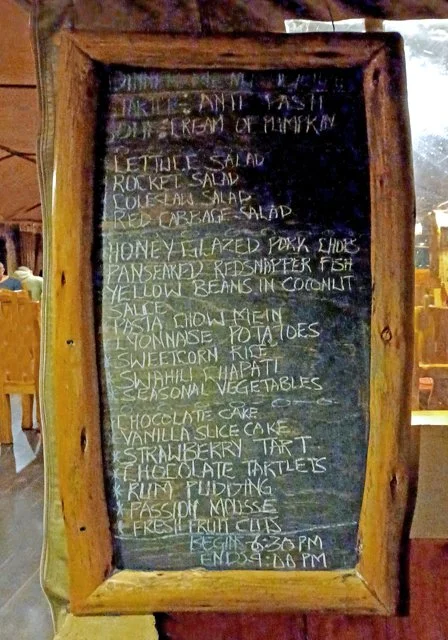 DINNER MENU
STARTER: ANTI PASTI
SOUP: CREAM OF PUMPKIN
LETTUCE SALAD
ROCKET SALAD
COLESLAW SALAD
RED CABBAGE SALAD
HONEY GLAZED PORK CHOPS
PANSEARED REDSNAPPER FISH
YELLOW BEANS IN COCONUT
SAUCE
PASTA CHOW MEIN
LYONNAISE POTATOES
SWEETCORN RICE
SWAHILI CHAPATI
SEASONAL VEGETABLES
CHOCOLATE CAKE
VANILLA SLICE CAKE
*STRAWBERRY TART
*CHOCOLATE TARTLETS
*RUM PUDDING
*PASSION MOUSSE
*FRESH FRUIT CUTS
BEGIN 6:30PM
ENDS 9:00PM